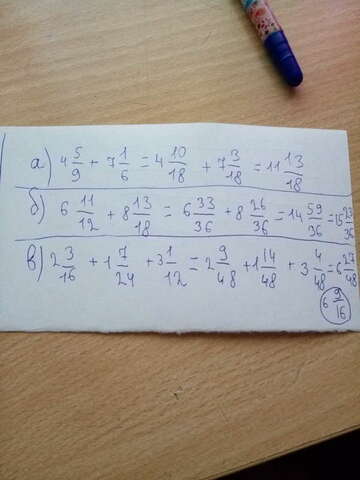 а) 4 5/9 + 7 1/6 = 4 10/18 + 7 3/18 = 11 13/18
б) 6 11/12 + 8 13/18 = 6 33/36 + 8 26/36 = 14 59/36 = 15 23/36
в) 2 3/16 + 1 7/24 + 3 1/12 = 2 9/48 + 1 14/48 + 3 4/48 = 6 27/48
6 9/16